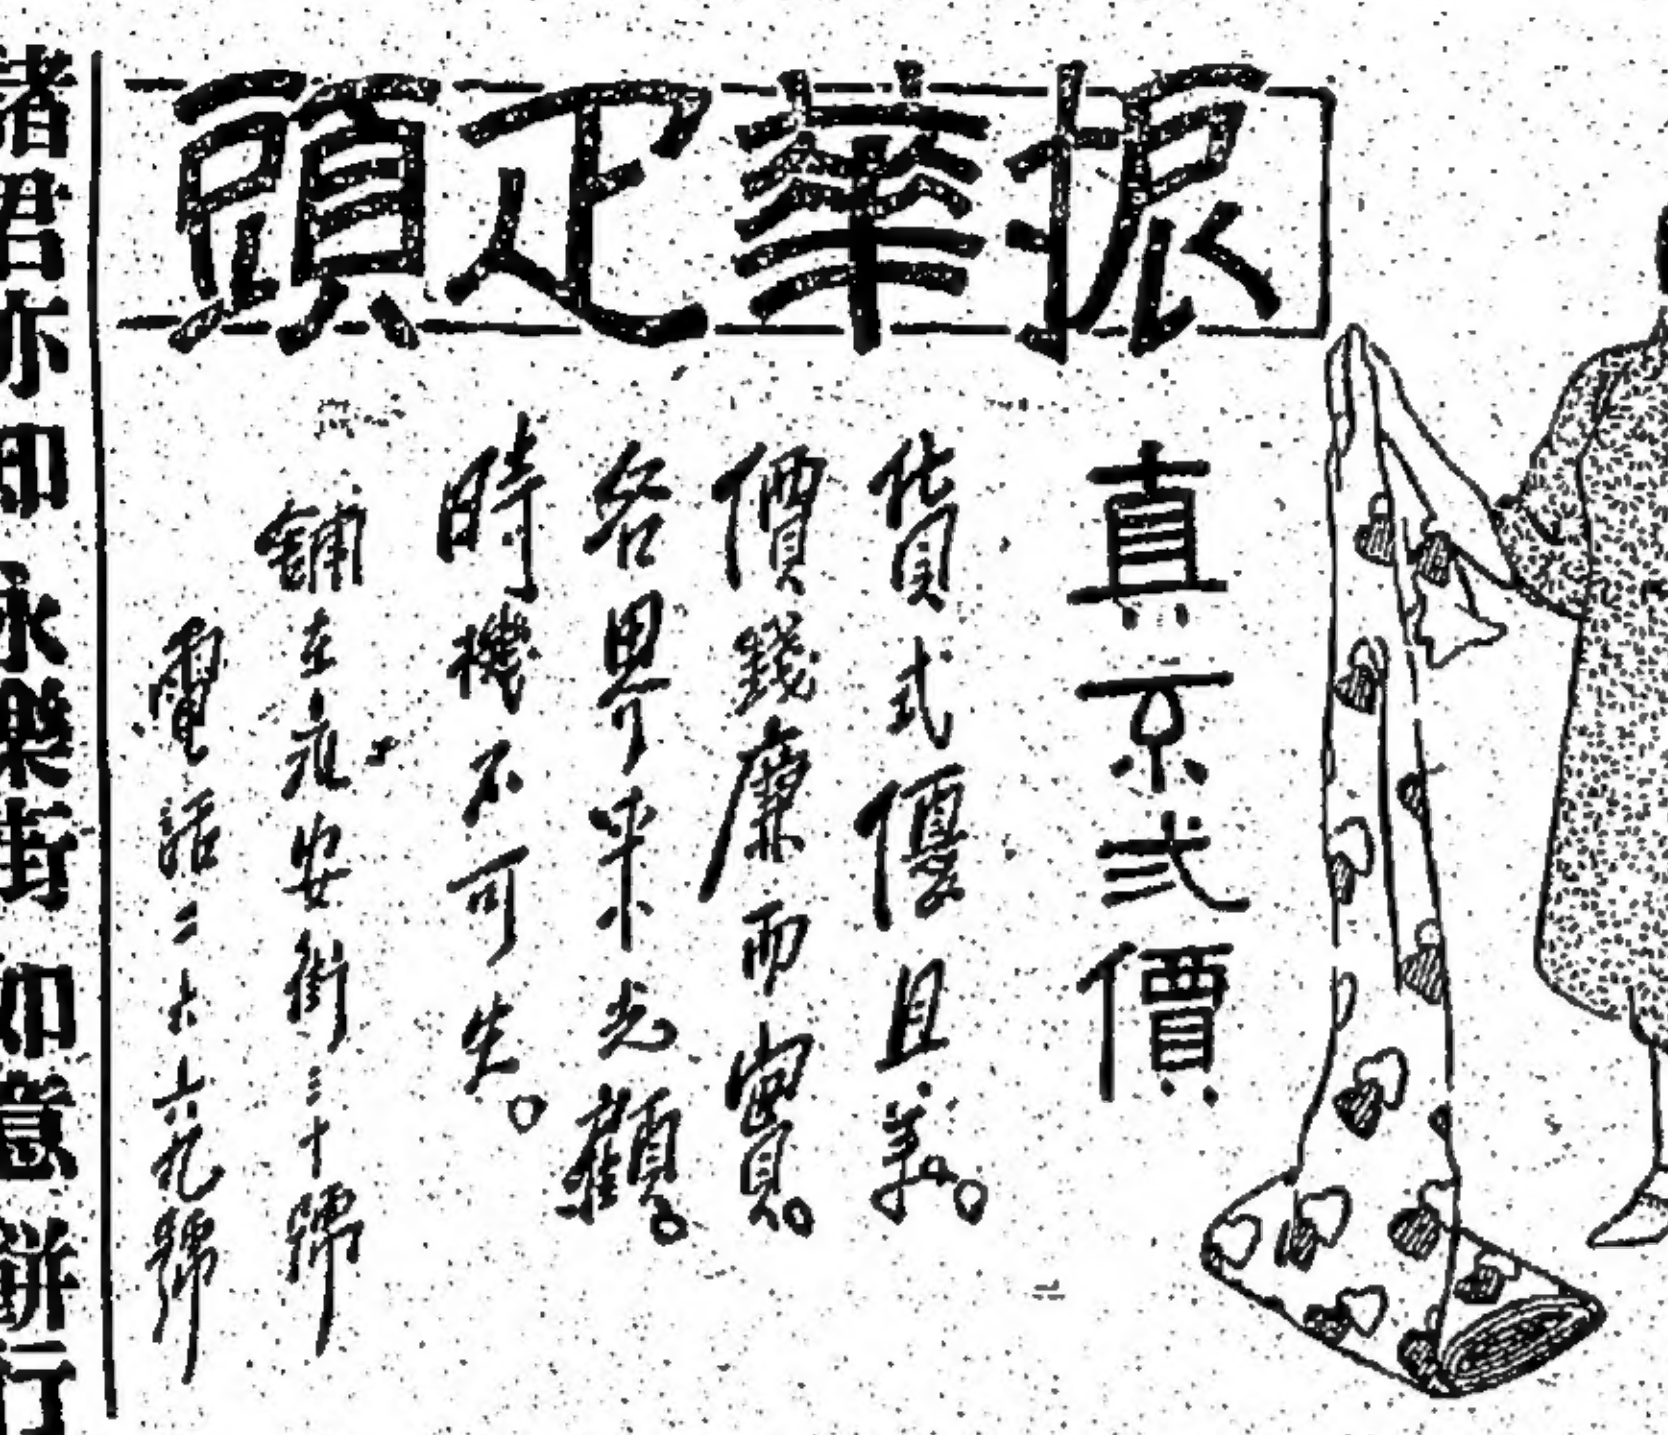 振華疋頭
真不弍價
貨式優且美。
價錢廉而實。
各界來光顧。
時機不可失。
舖在永安街三十號
電話二六六九號
諸君亦 永樂街 如意 餅行